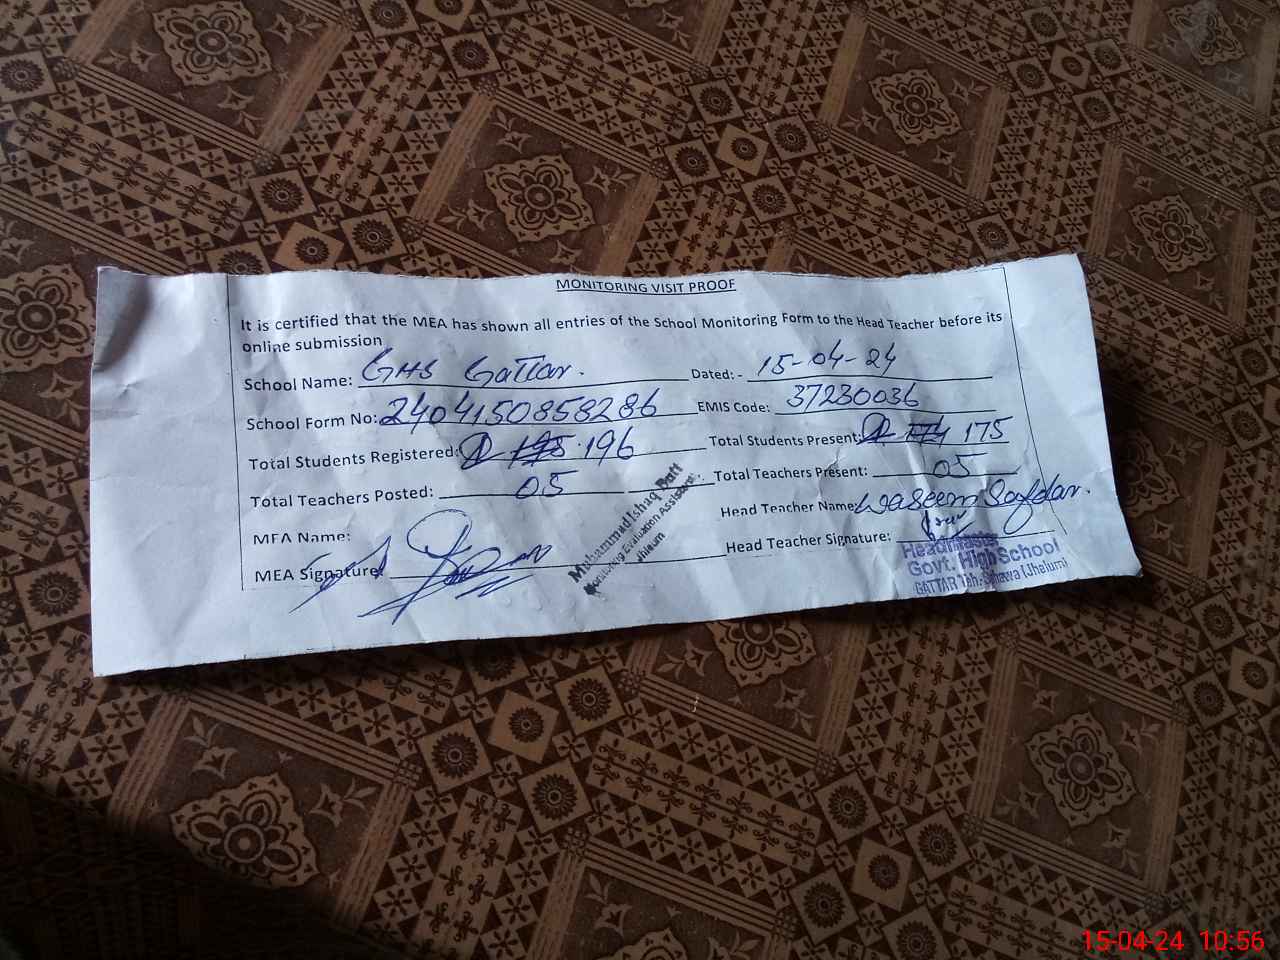 MONITORING VISIT PROOF
It is certified that the MEA has shown all entries of the School Monitoring Form to the Head Teacher before its
online submission
School Name: GHS Gattar. Dated: - 15-04-24
School Form No: 2404150858286 EMIS Code: 37230036
Total Students Registered: 196 Total Students Present: 175
Total Teachers Posted: 05 Total Teachers Present: 05
MEA Name: Head Teacher Name: Waseem Safdar.
MEA Signature: Head Teacher Signature:
Muhammad Ishaq Butt
Monitoring Evaluation Assistant
Jhleum
Headmaster
Govt. High School
GATTAR Teh: Sohawa (Jhelum)
15-04-24 10:56